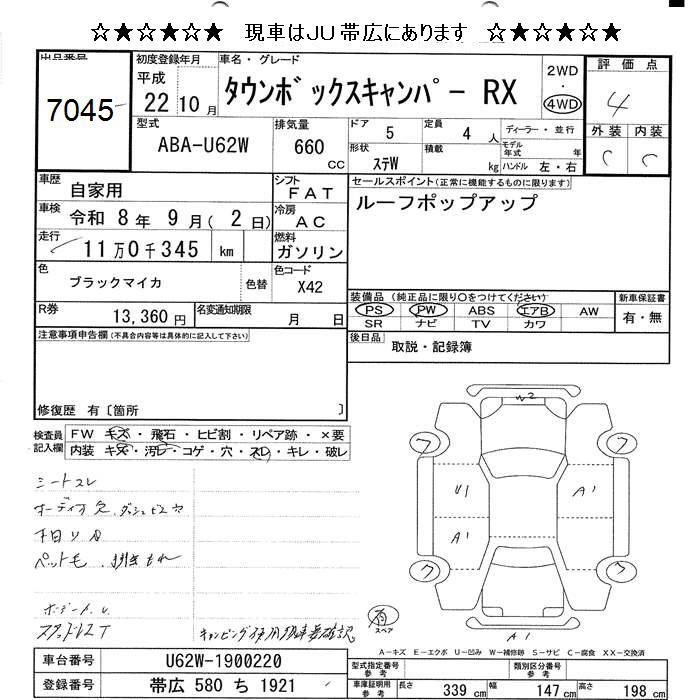 ☆★☆★☆★ 現車はJU帯広にあります ☆★☆★☆★
出品番号
7045
初度登録年月
平成
22 10 月
車名・グレード
タウンボックスキャンパー RX
2WD
・
4WD
評価点
4
外装 内装
C C
型式
ABA-U62W
排気量
660
CC
ドア
5
定員
4 人
形状
ステW
積載
kg
ディーラー・並行
モデル年式 年
ハンドル 左・右
車歴
自家用
シフト
FAT
車検
令和 8 年 9 月( 2 日)
冷房
AC
走行
11万0千345 km
燃料
ガソリン
色
ブラックマイカ
色替
色コード
X42
R券
13,360 円
名変通知期限
月 日
セールスポイント(正常に機能するものに限ります)
ルーフポップアップ
装備品(純正品に限り○をつけてください)
PS PW ABS エアB AW
SR ナビ TV カワ
新車保証書
有・無
後日品
取説・記録簿
注意事項申告欄(不具合内容等は具体的に記入して下さい)
修復歴 有〔箇所 〕
検査員記入欄
FW キズ・飛石・ヒビ割・リペア跡・×要
内装 キズ・汚レ・コゲ・穴・スレ・キレ・破レ
シートスレ
ペット毛
キャンピング使用
W2
ワ
ワ
U1
A1
A1
ワ
ワ
スペア
A1
A-キズ E-エクボ U-凹み W-補修跡 S-サビ C-腐食 XX-交換済
車台番号
U62W-1900220
登録番号
帯広 580 ち 1921
型式指定番号
参考
類別区分番号
参考
車庫証明用
参考
長さ
339 cm
幅
147 cm
高さ
198 cm